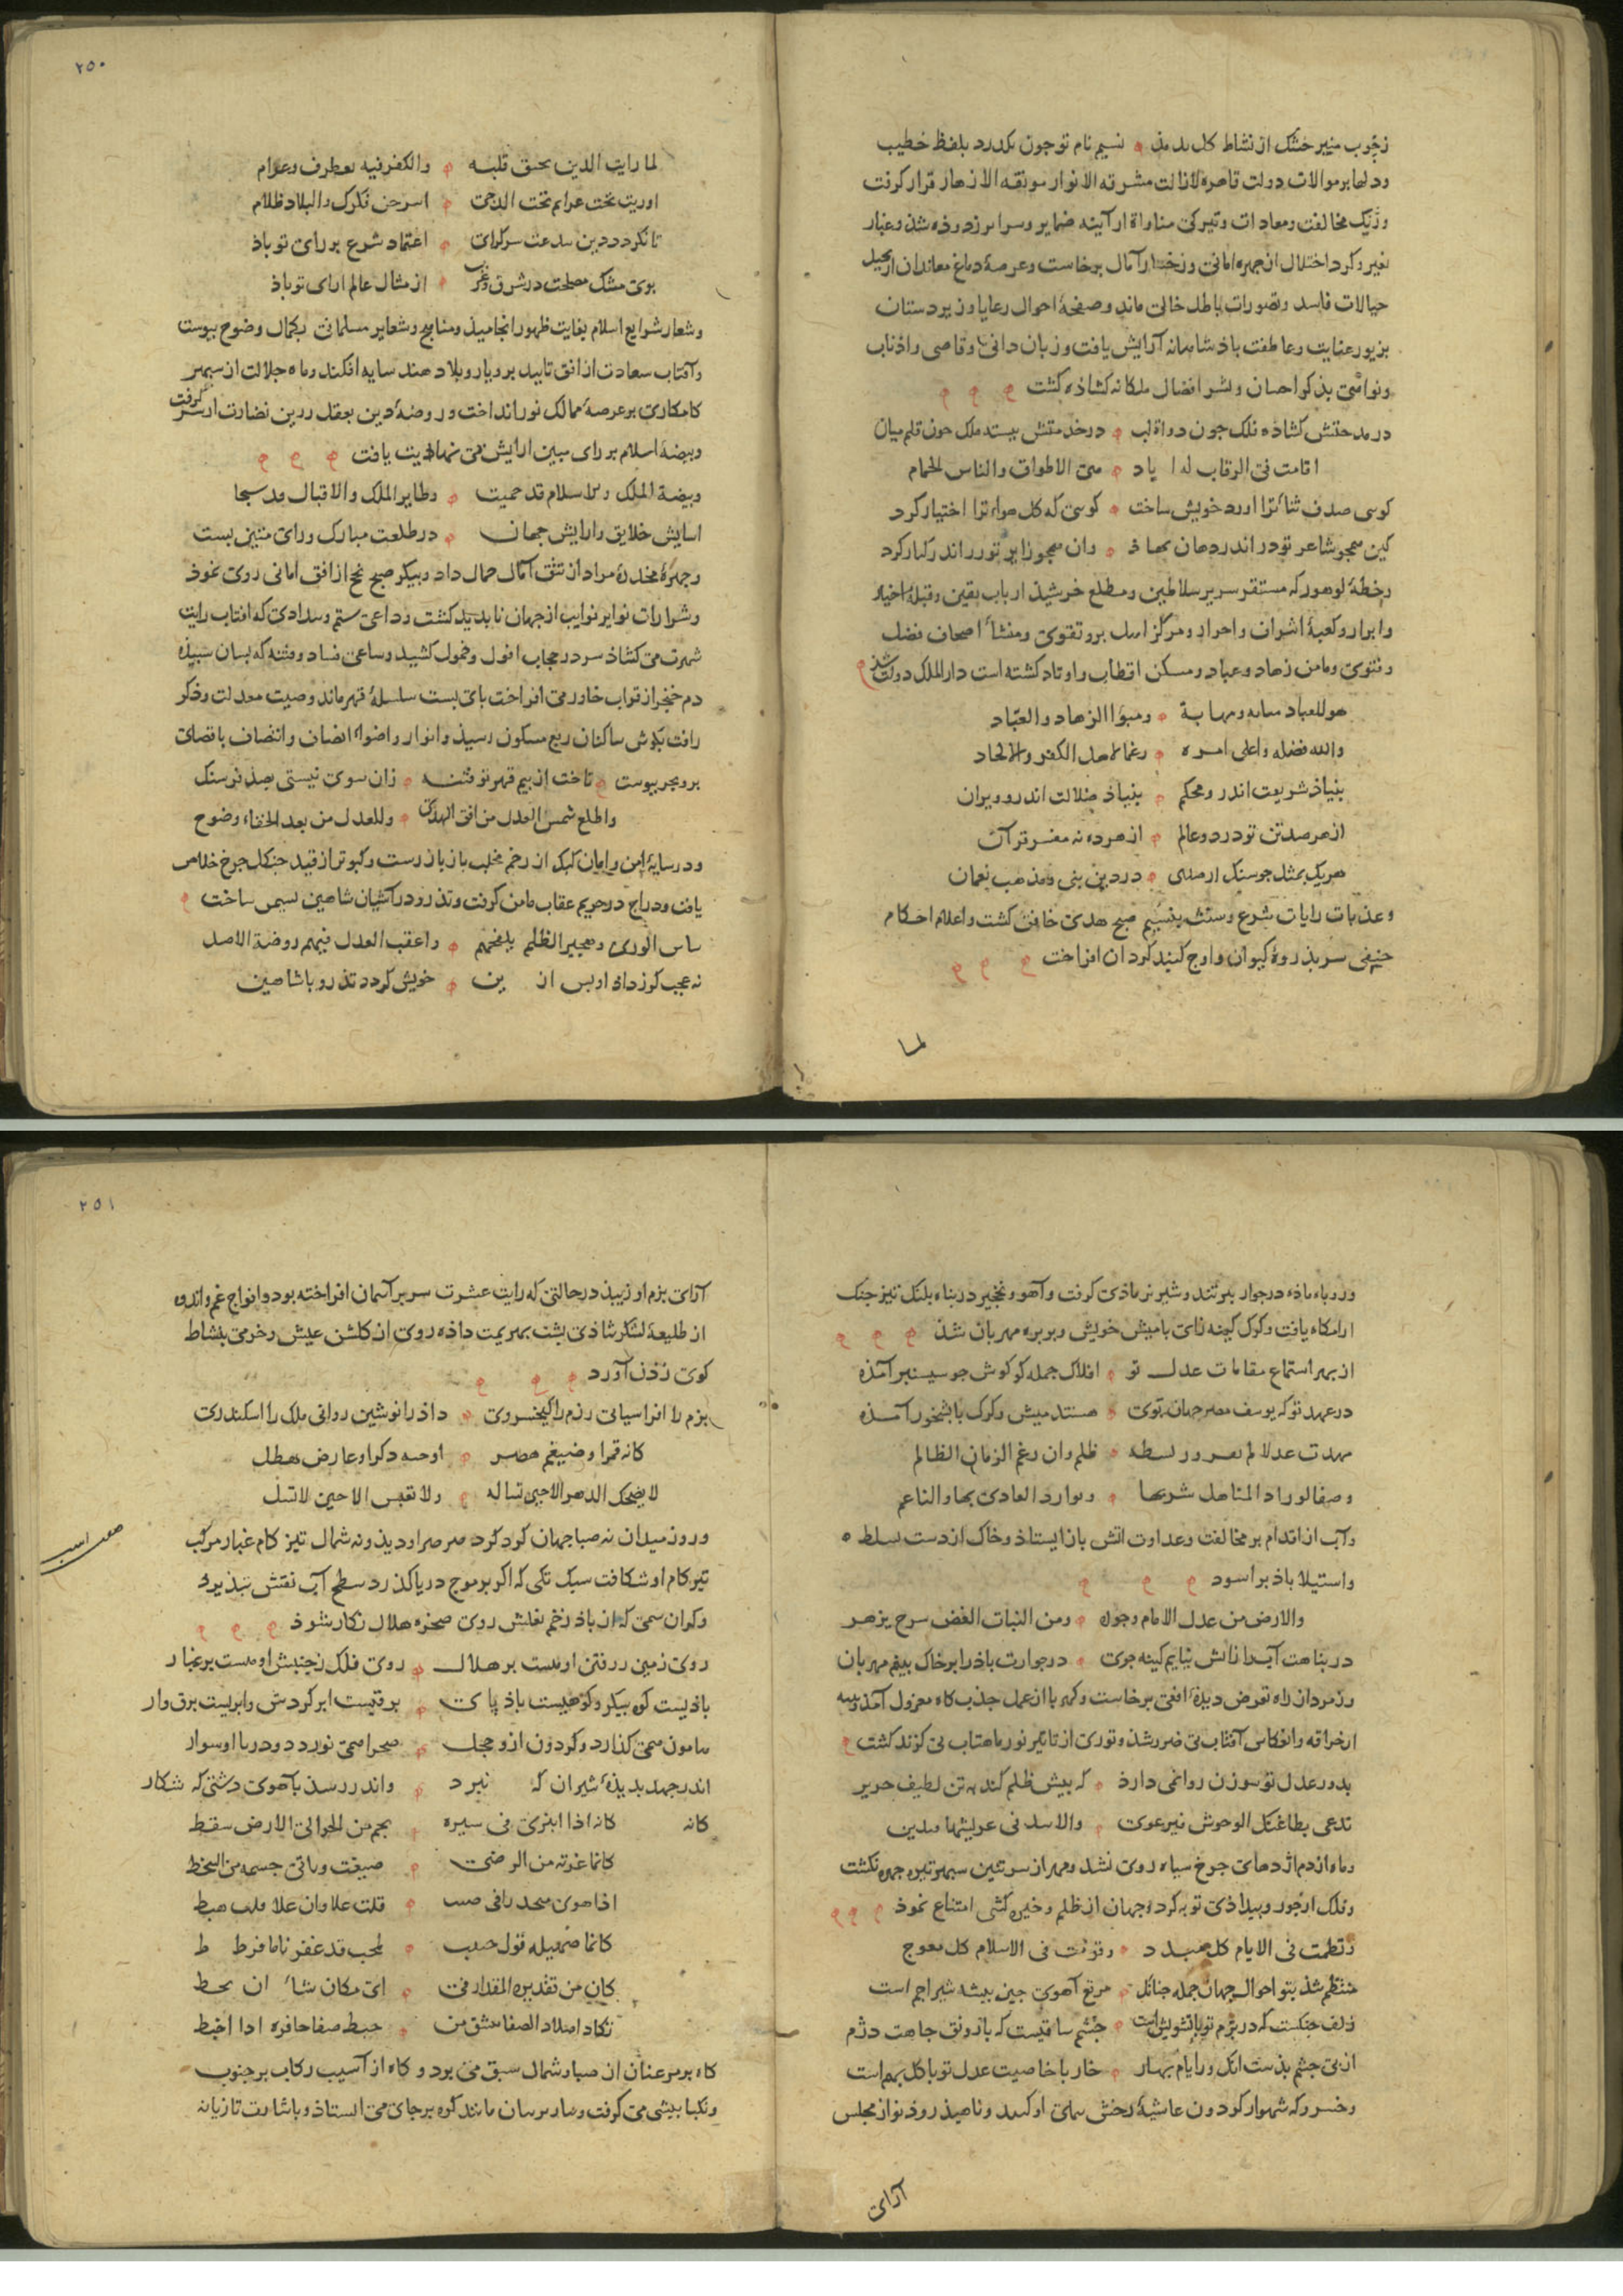 زچوب منبر خشک از نشاط کل بدمذ نسیم نام تو جون بکدرد بلفظ خطیب
ودلها بر موالات دولت قاهره لا زالت مشرقة الانوار مونقة الازهار قرار کرفت
وزنک مخالفت ومعادات وتیرکی مناواة از آینه ضمایر وسرایر زدوذه شذ وغبار
تغیر وکرد اختلال از جهره امانی ورخسار آمال برخاست وعرصهٔ دماغ معاندان از تخیل
خیالات فاسد وتصورات باطل خالی ماند وصفحهٔ احوال رعایا وزیردستان
بزیور عنایت وعاطفت باذشاهانه آرایش یافت وزبان دانی وقاصی واذناب
ونواصی بذکر احسان ونشر افضال ملکانه کشاذه کشت
در مدحتش کشاده فلک جون دواة لب در خدمتش ببسته ملک جون قلم میان
اقامت فی الرقاب له ایاد هی الاطواق والناس الحمام
کوسی صدف ثنا ترا ورد خویش ساخت کوسی که کل هواء ترا اختیار کرد
کین همجو شاعر تو در اندر دهان نهاذ وان همجو زایر تو زر اندر کنار کرد
وخطهٔ لوهور که مستقر سریر سلاطین ومطلع خرشیذ ارباب یقین وقبلهٔ اخیار
وابرار وکعبهٔ اشراف واحرار ومرکز اهل بر وتقوی ومنشأ اصحاب فضل
وفتوی ومامن زهاد وعباد ومسکن اقطاب واوتاد کشته است دار الملک دولت شذ
هو للعباد مثابة ومهابة ومبوّا الزهاد والعبّاد
والله فضله واعلی امره رغما لاهل الکفر والالحاد
بنیاذ شریعت اندرو محکم بنیاذ ضلالت اندرو ویران
از هر صد تن تو درد وعالم از هر ده نه مفسر قرآن
هریک بمثل جو سنک ار صلبی در دین بنی ومذهب نعمان
وعذبات رایات شرع وسنت بنسیم صبح هدی خافق کشت واعلام احکام
حنیفی سر بذروهٔ کیوان واوج کنبد کردان افراخت
لما
۲۵۰
لما رایت الدین یخفق قلبه والکفر فیه تعطرف وعرام
اوریت تحت عرایم تحت الدجی اسرجن فکرک والبلاد ظلام
تا نکردد دین بدعت سرکرای اعتماد شرع بر رای تو باذ
بوی مشک مصلحت در شرق وغرب از مثال عالم ارای تو باذ
وشعار شرایع اسلام بغایت ظهور انجامیذ ومناهج وشعایر مسلمانی بکمال وضوح بیوست
وآفتاب سعادت از افق تایید بر دیار وبلاد هند سایه افکند وماه جلالت از سبهر
کامکاری بر عرصهٔ ممالک نور انداخت وروضهٔ دین بعقل رزین نضارت از سر کرفت
وبیضهٔ اسلام برای مبین ارایش بی نهایت یافت
وبیضة الملک والاسلام قد حمیت وطایر الملک والاقبال قد سجا
اسایش خلایق وارایش جهان در طلعت مبارک ورای متین بست
وجهرهٔ مخدرهٔ مراد از تتق آمال جمال داد وبیکر صبح نجح از افق امانی روی نموذ
وشرارات نوایر نوایب از جهان نابدید کشت وداعی ستم وبیدادی که افتاب رایت
شهرت می کشاذ سر در حجاب افول وخمول کشید وساعی فساد وفتنه که بسان سبیذه
دم خنجر از قراب خاور می افراخت بای بست سلسلهٔ قهر ماند وصیت معدلت وذکر
رافت بکوش ساکنان ربع مسکون رسیذ وانوار واضواء انصاف وانتصاف باقصای
بر وبحر بیوست تاخت از بیم قهر تو فتنه زان سوی نیستی بصذ فرسنک
واطلع شمس العدل من افق الهدی وللعدل من بعد الخفاء وضوح
ودر سایهٔ امن وامان کبک از زخم مخلب باز باز رست وکبوتر از قید جنکل جرخ خلاص
یافت ودراج در حریم عقاب مامن کرفت وتذرو در آشیان شاهین نشیمن ساخت
ساس الوری وهجیر الظلم یلفحهم واعقب العدل فیهم روضة الاصل
نه عجب کوز داد او بس از ین خویش کردد تذرو با شاهین
وروباه ماده در جوار ببر تند وشیر نر ماذی کرفت وآهو ونخجیر در بناه بلنک تیز جنک
ارامکاه یافت وکرک کینه زای با میش خویش وبر بره مهربان شذ
از بهر استماع مقامات عدل تو افلاک جمله کو کوش جو سیسنبر آمذه
در عهد تو که یوسف مصر جهان توی هستند میش وکرک بابشخور آمذه
مهدت عدلا لم تعرور بسطه ظلم وان رغم الزمان الظالم
وصفا لوراد المناهل شربها وتوارد العادی بها والناعم
وآب از اقدام بر مخالفت وعداوت اتش باز ایستاذ وخاک از دست سلطه
واستیلا باذ براسود
والارض من عدل الامام وجوده ومن النبات الغض سرح یزهر
در بناهت آبرا ز اتش نیایم کینه جوی در جوارت باذ را بر خاک بینم مهربان
وزمرد از راه تعرض دیدهٔ افعی برخاست وکهربا از عمل جذب کاه معزول آمذ وبنبه
از خراقه وانعکاس آفتاب بی ضرر شذ وتوزی از تاثیر نور ماهتاب بی کزند کشت
بدور عدل تو سوزن روا نمی دارذ که بیش ظلم کند بر تن لطیف حریر
تدعی بطاعتک الوحوش فترعوی والاسد فی عرینها وتدین
وماه از دم اژدهای جرخ سیاه روی نشد ومهر از سر تنین سبهر تیره جهره نکشت
وفلک از جور وبیداذی توبه کرد وجهان از ظلم وخیره کشی امتناع نموذ
ونظمت فی الایام کل مبدد وقومت فی الاسلام کل معوج
منتظم شذ بتو احوال جهان جمله جنانک مرتع آهوی جین بیشه شیر اجم است
زلف جنکست که در بزم تو با تشویش است جشم ساقیست که باز ونق جاهت دژم
از بی جشم بذست انک در ایام بهار خار با خاصیت عدل تو با کل بهم است
وخسرو که شهسوار کردون غاشیهٔ رخش همای او کشد وناهیذ روذنواز مجلس
آرای
۲۵۱
آرای بزم او زیبذ در حالتی که رایت عشرت سر بر آسمان افراخته بود وافواج غم واندوه
از طلیعهٔ لشکر شاذی بشت بهزیمت داذه روی از کلشن عیش وخرمی بنشاط
کوی زدن آورد
بزم را افراسیابی رزم را کیخسروی داد را نوشین روانی ملک را اسکندری
کانه قمرا وضیغم هصر اوحیه ذکرا وعارض هطل
لا یضحک الدهر الا حین تساله ولا تعبس الا حین لا تسل
وروز میدان نه صبا جهان کرد کرد صرصر او دیذ ونه شمال تیز کام غبار مرکب
تیز کام او شکافت سبک تکی که اکر بر موج دریا کذرد سطح آب نقش نبذیرد
وکران سمی که از باذ زخم نعلش روی صخره هلال نکار شوذ
صفت اسب
روی زمین ز رفتن او هست بر هلال روی فلک ز جنبش او هست بر غبار
باذیست کوه بیکر وکوهیست باذ پای برقیست ابر کردش وابریست برق وار
هامون همی کذارد وکردون ازو خجل صحرا همی نوردد ودریا او سوار
اندر جهد بدیذهٔ شیران که نبرد واندر رسذ بآهوی دشتی که شکار
کانه کانه اذا انبری فی سیره نجم من الجو الی الارض سقط
کانما غرته من الرضی صیغت وباقی جسمه من السخط
اذا هوی قلت علا وان علا قلت هبط
کان من تقدیره المقدار فی ای مکان شاء ان یحط
تکاد اصلاد الصفا تنشق من خبط صفا حافره اذا اختبط
کاه بر مر عنان از صبا وشمال سبق می برد و کاه از آسیب رکاب بر جنوب
ونکبا بیشی می کرفت وبسان مانند کوه بر جای می ایستاذ وباشارت تازیانه